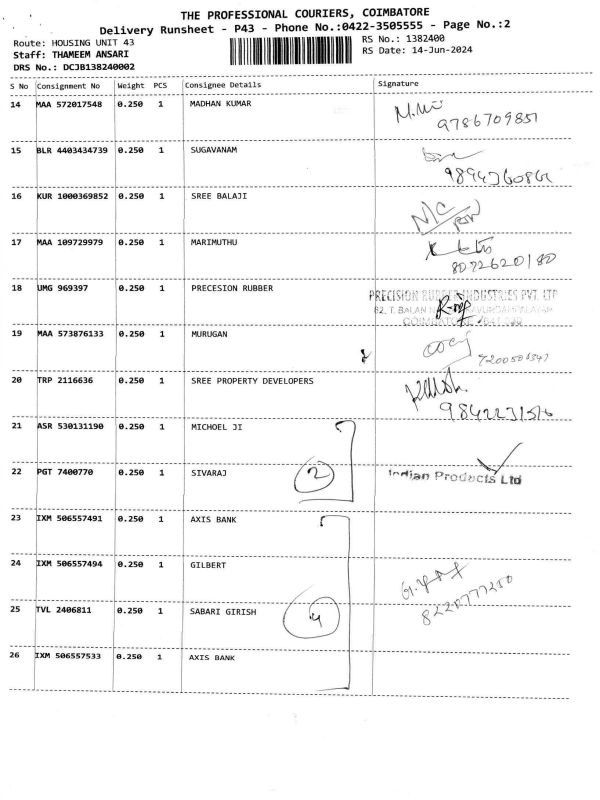 THE PROFESSIONAL COURIERS, COIMBATORE
Delivery Runsheet - P43 - Phone No.:0422-3505555 - Page No.:2
Route: HOUSING UNIT 43
RS No.: 1382400
Staff: THAMEEM ANSARI
RS Date: 14-Jun-2024
DRS No.: DCJB138240002
S No Consignment No Weight PCS Consignee Details Signature
14 MAA 572017548 0.250 1 MADHAN KUMAR
9786709851
15 BLR 4403434739 0.250 1 SUGAVANAM
16 KUR 1000369852 0.250 1 SREE BALAJI
N/C
17 MAA 109729979 0.250 1 MARIMUTHU
8072620180
18 UMG 969397 0.250 1 PRECESION RUBBER
PRECISION RUBBER INDUSTRIES PVT. LTD
19 MAA 573876133 0.250 1 MURUGAN
20 TRP 2116636 0.250 1 SREE PROPERTY DEVELOPERS
21 ASR 530131190 0.250 1 MICHOEL JI
22 PGT 7400770 0.250 1 SIVARAJ 2 Indian Products Ltd
23 IXM 506557491 0.250 1 AXIS BANK
24 IXM 506557494 0.250 1 GILBERT
8220777250
25 TVL 2406811 0.250 1 SABARI GIRISH 4
26 IXM 506557533 0.250 1 AXIS BANK